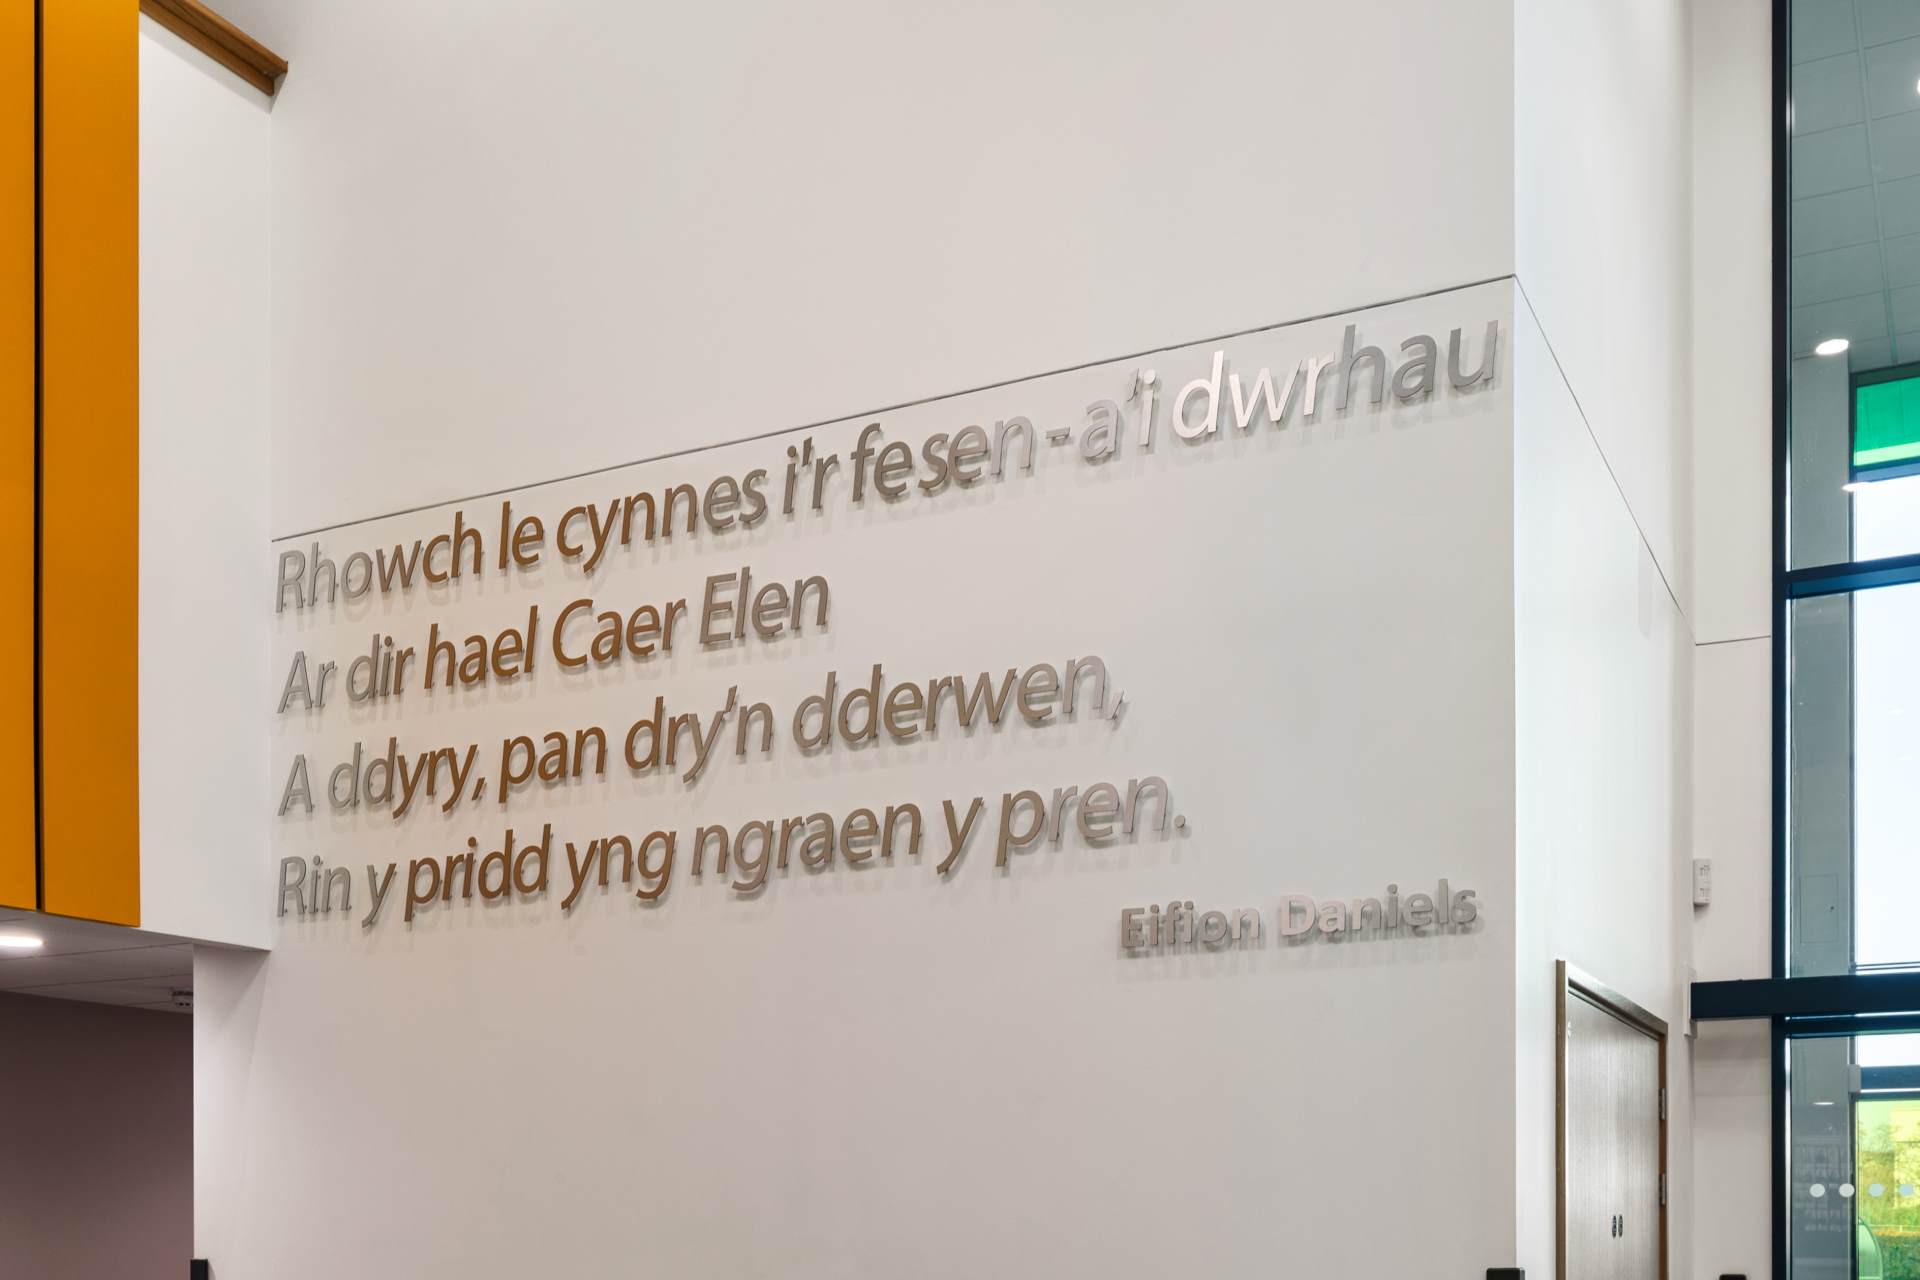 Rhowch le cynnes i'r fesen - a'i dwrhau
Ar dir hael Caer Elen
A ddyry, pan dry'n dderwen,
Rin y pridd yng ngraen y pren.
Eifion Daniels